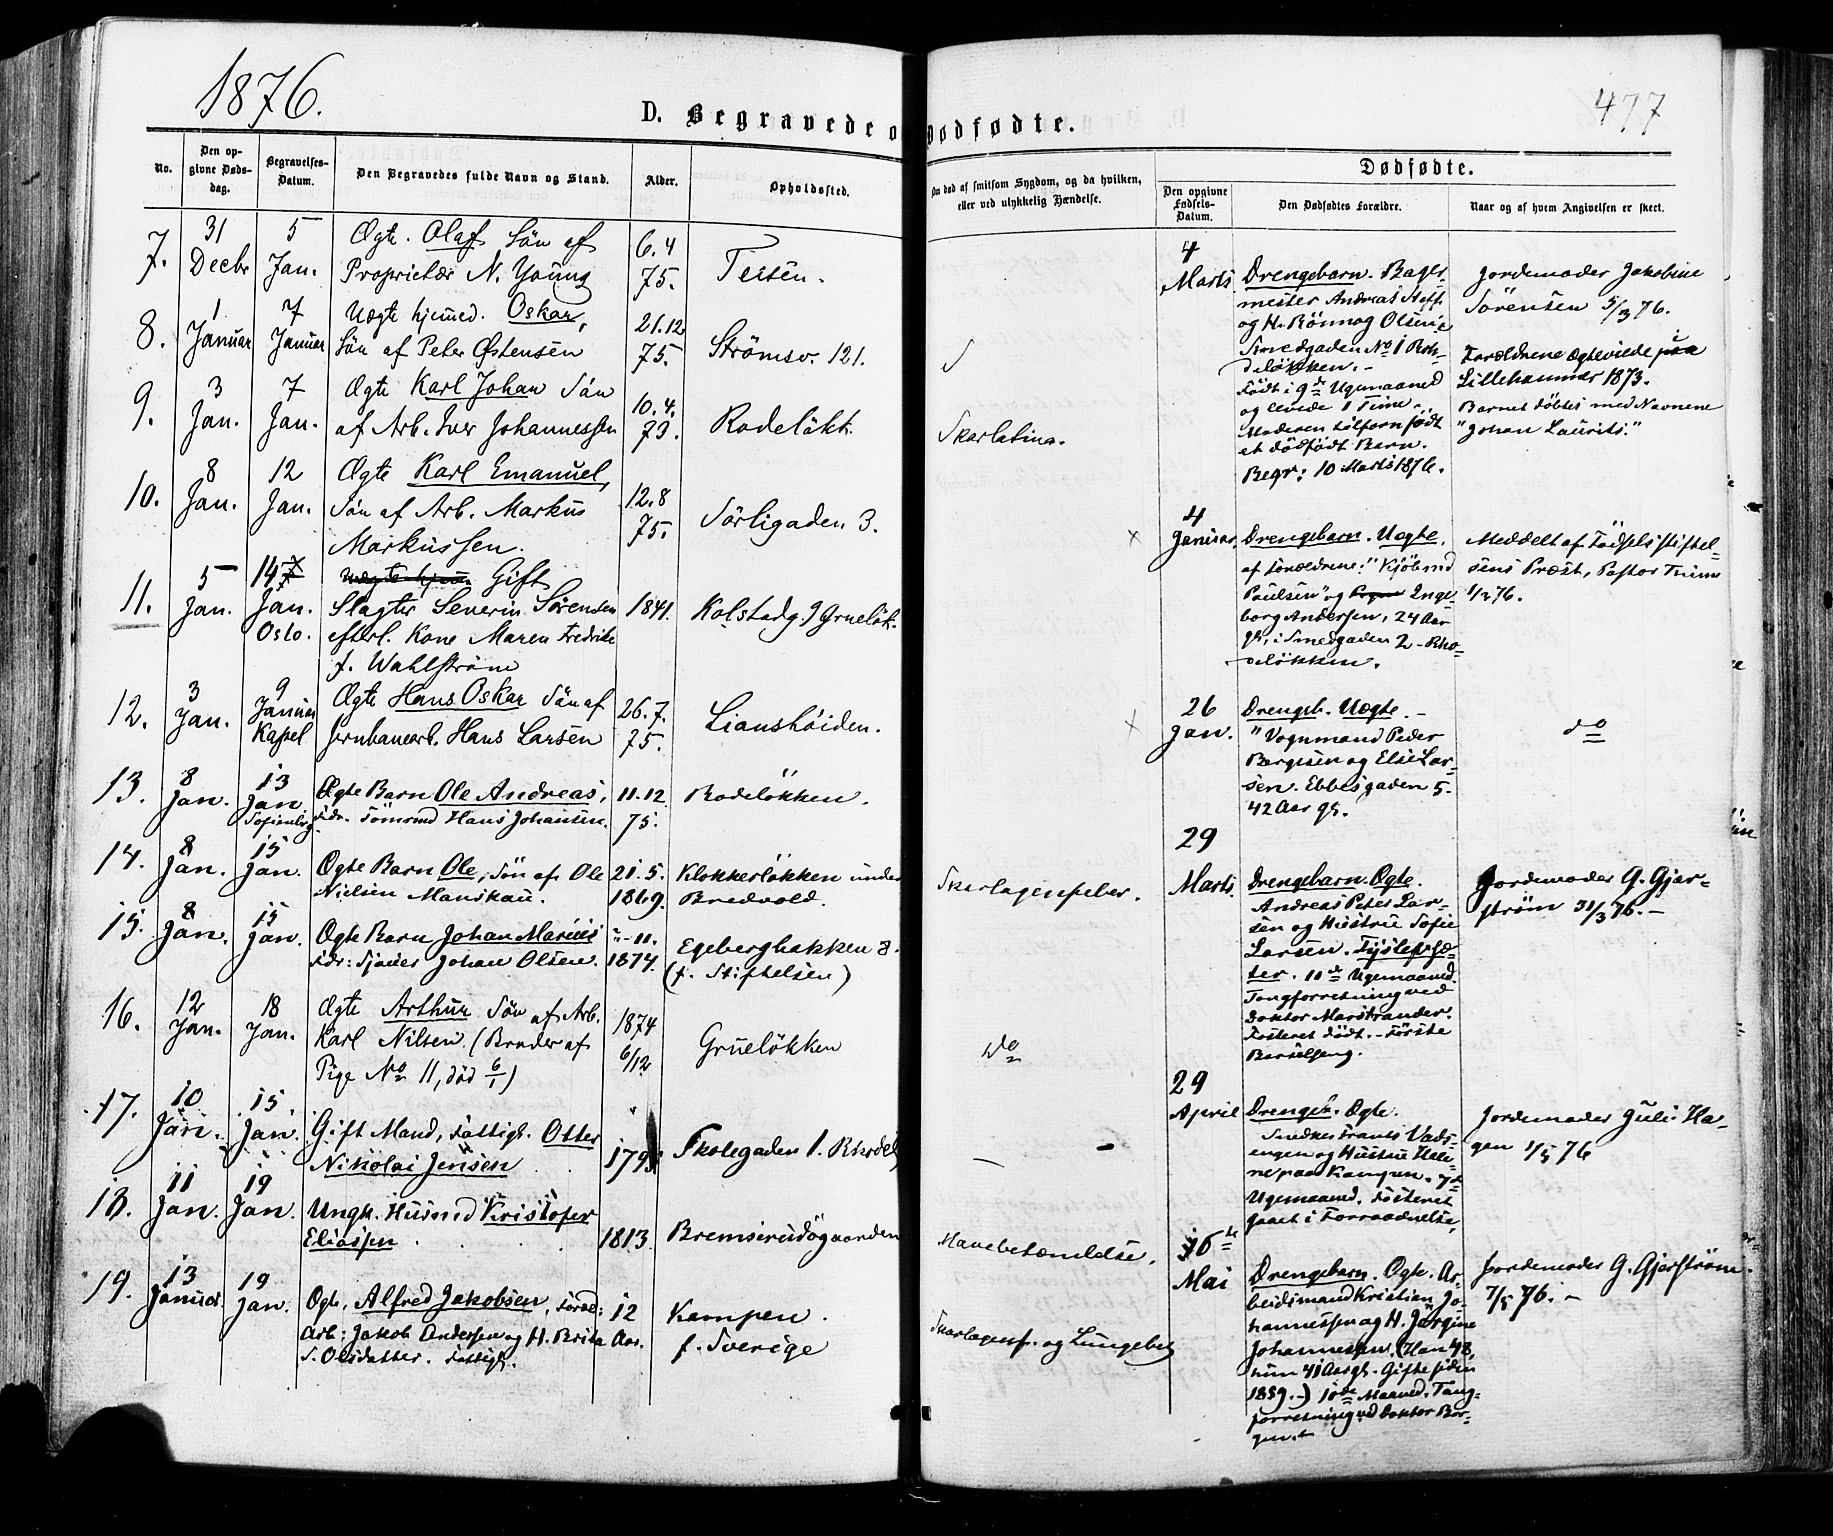 1876.
477
D. Begravede o
Dødfødte.
No.
Den op-
givne Døds-
dag.
Begravelses-
Datum.
Den Begravedes fulde Navn og Stand.
Alder.
Opholdssted.
Om død af smitsom Sygdom, og da hvilken,
eller ved ulykkelig Hændelse.
Dødfødte.
Den opgivne
Fødsels-
Datum.
Den Dødfødtes Forældre.
Naar og af hvem Angivelsen er skeet.
7.
31
Decbr
5
Jan.
Ægte. Olaf Søn af
Proprietær N. Young
6.4
75.
Teisen.
8.
1
Januar
7
Januar
Uægte hjemmed. Oskar,
Søn af Peter Østensen
21.12
75.
Strömsv. 121.
9.
3
Jan.
7
Jan.
Ægte Karl Johan Søn
af Arb. Iver Johannessen
10.4.
73.
Rodeløkk.
Skarlatina.
10.
8
Jan.
12
Jan.
Ægte Karl Emanuel,
Søn af Arb. Markus
Markussen.
12.8
75.
Sörligaden 3.
11.
5
Jan.
14
Jan.
Oslo.
Uægte hjem. Gift
Slagter Severin Sörensen
efterl. Kone Maren Fredrikke
f. Wahlström
1841.
Kolstadg. 9 Grueløk.
12.
3
Jan.
9
Januar
Kapel
Ægte Hans Oskar Søn af
Jernbanearb. Hans Larsen
26.7.
75.
Lianshöiden.
13.
8
Jan.
13
Jan.
Sofienbrg.
Ægte Barn Ole Andreas,
Fdr. Tömrmd Hans Johansen.
11.12
75.
Rodeløkken.
14.
8
Jan.
15
Jan.
Ægte Barn Ole, Søn af Ole
Nielsen Manskau.
21.5.
1869.
Klokkerløkken under
Bredvold.
Skarlagensfeber.
15.
8
Jan.
15
Jan.
Ægte Barn Johan Marius
Fdr: Sjauer Johan Olsen.
"-11.
1874.
Egebergbakken 8.
(f. Stiftelsen)
16.
12
Jan.
18
Jan.
Ægte Arthur Søn af Arb.
Karl Nilsen. (Broder af
Pige No 11, död 6/1)
1874
6/12
Grueløkken
do
17.
10
Jan.
15
Jan.
Gift Mand, Fattigl. Otter
Nikolai Jensen
179
Skolegaden 1. Rhodel
18.
11
Jan.
19
Jan.
Ungk. Husmd Kristofer
Eliassen
1813.
Bremserudsgaarden
Mavebetændelse.
19.
13
Januar.
19
Jan.
Ægte. Alfred Jakobsen, Foræl:
Arb: Jakob Andersen og H. Brita
S. Olsdatter. Fattigl.
12
Aar.
Kampen.
f. Sverige
Skarlagensf. og Lungebet
4
Marts
Drengebarn. Bager-
mester Andreas Hoff
og H. Rönnog Olsen
Smedgaden No 1 Rho-
deløkken. -
Født i 9de Ugemaaned
og levede 1 Time.
Moderen tilforn født
et dödfødt Barn.
Begr: 10 Marts 1876.
Jordemoder Jakobine
Sörensen 5/3 76.
Forældrene ægteviede paa
Lillehammer 1873.
Barnet døbtes med Navnene
"Johan Laurits."
4
Januar.
Drengebarn. Uægte.
af Forældrene: "Kjöbmd
Poulsen" og Inge-
borg Andersen, 24 Aar
gl, i Smedgaden 2 - Rho-
deløkken.
Meddelt af Fødselsstiftel-
sens Præst, Pastor Thime
1/2 76.
26
Jan.
Drengeb. Uægte. -
"Vognmand Peder
Borgesen og Elise Lar-
sen. Ebbesgaden 5.
42 Aar gl.
do
29
Marts
Drengebarn. Ægte.
Andreas Peter Lar-
sen og Hustru Sofie
Larsen. 
10de Ugemaaned
Tangforretning ved
Doktor Marstrander.
Fosteret dödt. - Förste
Barselseng.
Jordemoder G. Gjer-
ström 31/3 76. -
29
April
Drengeb. Ægte.
Snedker Frants Vads-
engen og Hustru Heli-
ne paa Kampen. 7de
Ugemaaned. Fosteret
gaaet i Forraadnelse,
Jordemoder Juli Ha-
gen 1/5 76
16de
Mai
Drengebarn. Ægte. Ar-
beidsmand Kristian Jo-
hannessen og H. Jørgine
Johannessen. (Han 48,
hun 41 Aar gl. Gifte siden
1859. -) 10de Maaned. Tang-
forretning ved Doktor Bor-
gen. -
Jordemoder G. Gjerström.
7/5 76. -